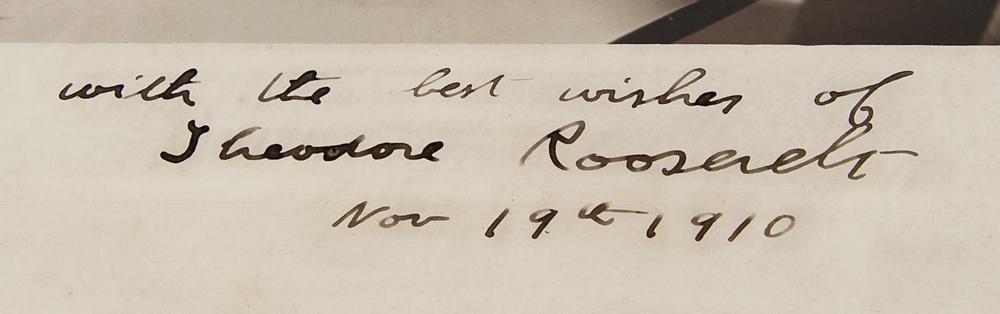 with the best wishes of
Theodore Roosevelt
Nov 19th 1910